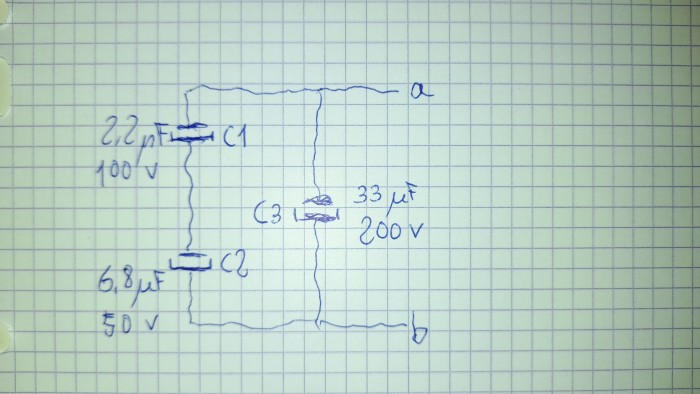 a
2,2 µF C1
100 V
33 µF
C3
200 V
C2
6,8 µF
50 V
b